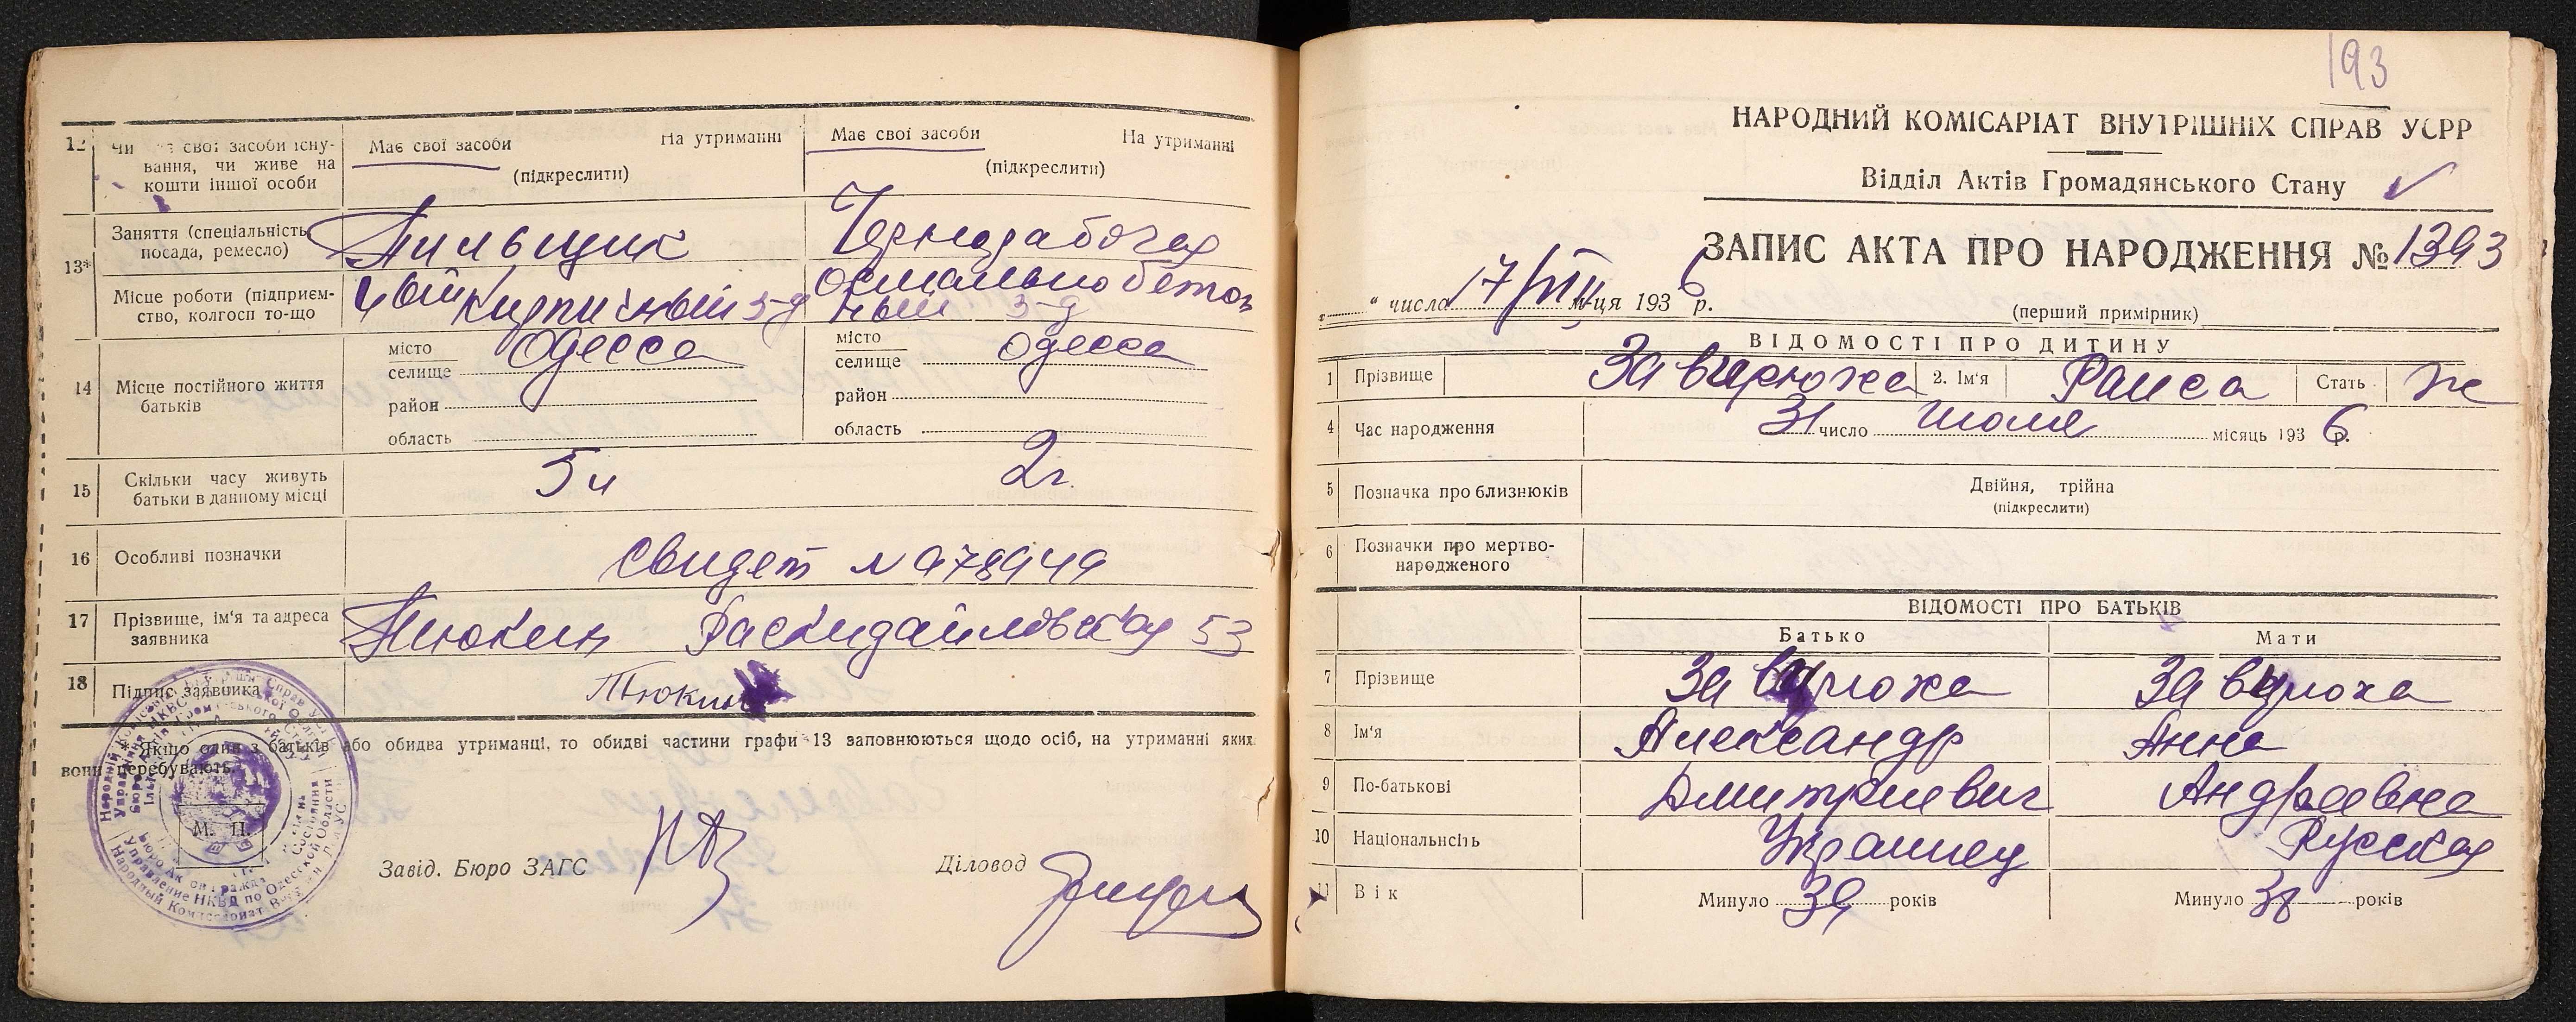 12 Чи має свої засоби існу-
вання, чи живе на
кошти іншої особи
Має свої засоби На утриманні
(підкреслити)
Має свої засоби На утриманні
(підкреслити)
13* Заняття (спеціальність,
посада, ремесло)
Пильщик
Чернорабочая
Місце роботи (підприєм-
ство, колгосп то-що
Кирпичный з-д
ный з-д
14 Місце постійного життя
батьків
місто
селище Одесса
район
область
місто
селище Одесса
район
область
15 Скільки часу живуть
батьки в данному місці
2 г.
16 Особливі позначки
Свидет N 978949
17 Прізвище, ім'я та адреса
заявника
Тюкин Раскидайловская 53
18 Підпис заявника
Тюкин
* Якщо один з батьків або обидва утриманці, то обидві частини графи 13 заповнюються щодо осіб, на утриманні яких
вони перебувають.
М. П.
Завід. Бюро ЗАГС
Діловод
193
НАРОДНИЙ КОМІСАРІАТ ВНУТРІШНІХ СПРАВ УСРР
Відділ Актів Громадянського Стану
ЗАПИС АКТА ПРО НАРОДЖЕННЯ № 1393
" числа 17/VIII м-ця 1936 р.
(перший примірник)
ВІДОМОСТІ ПРО ДИТИНУ
1 Прізвище Завирюха 2. Ім'я Раиса Стать ж
4 Час народження 31 число Июля місяць 1936 р.
5 Позначка про близнюків Двійня, трійна
(підкреслити)
6 Позначки про мертво-
народженого
ВІДОМОСТІ ПРО БАТЬКІВ
Батько Мати
7 Прізвище Завирюха Завирюха
8 Ім'я Александр Анна
9 По-батькові Дмитриевич Андреевна
10 Національність Украинец Русская
11 Вік Минуло 39 років Минуло 38 років